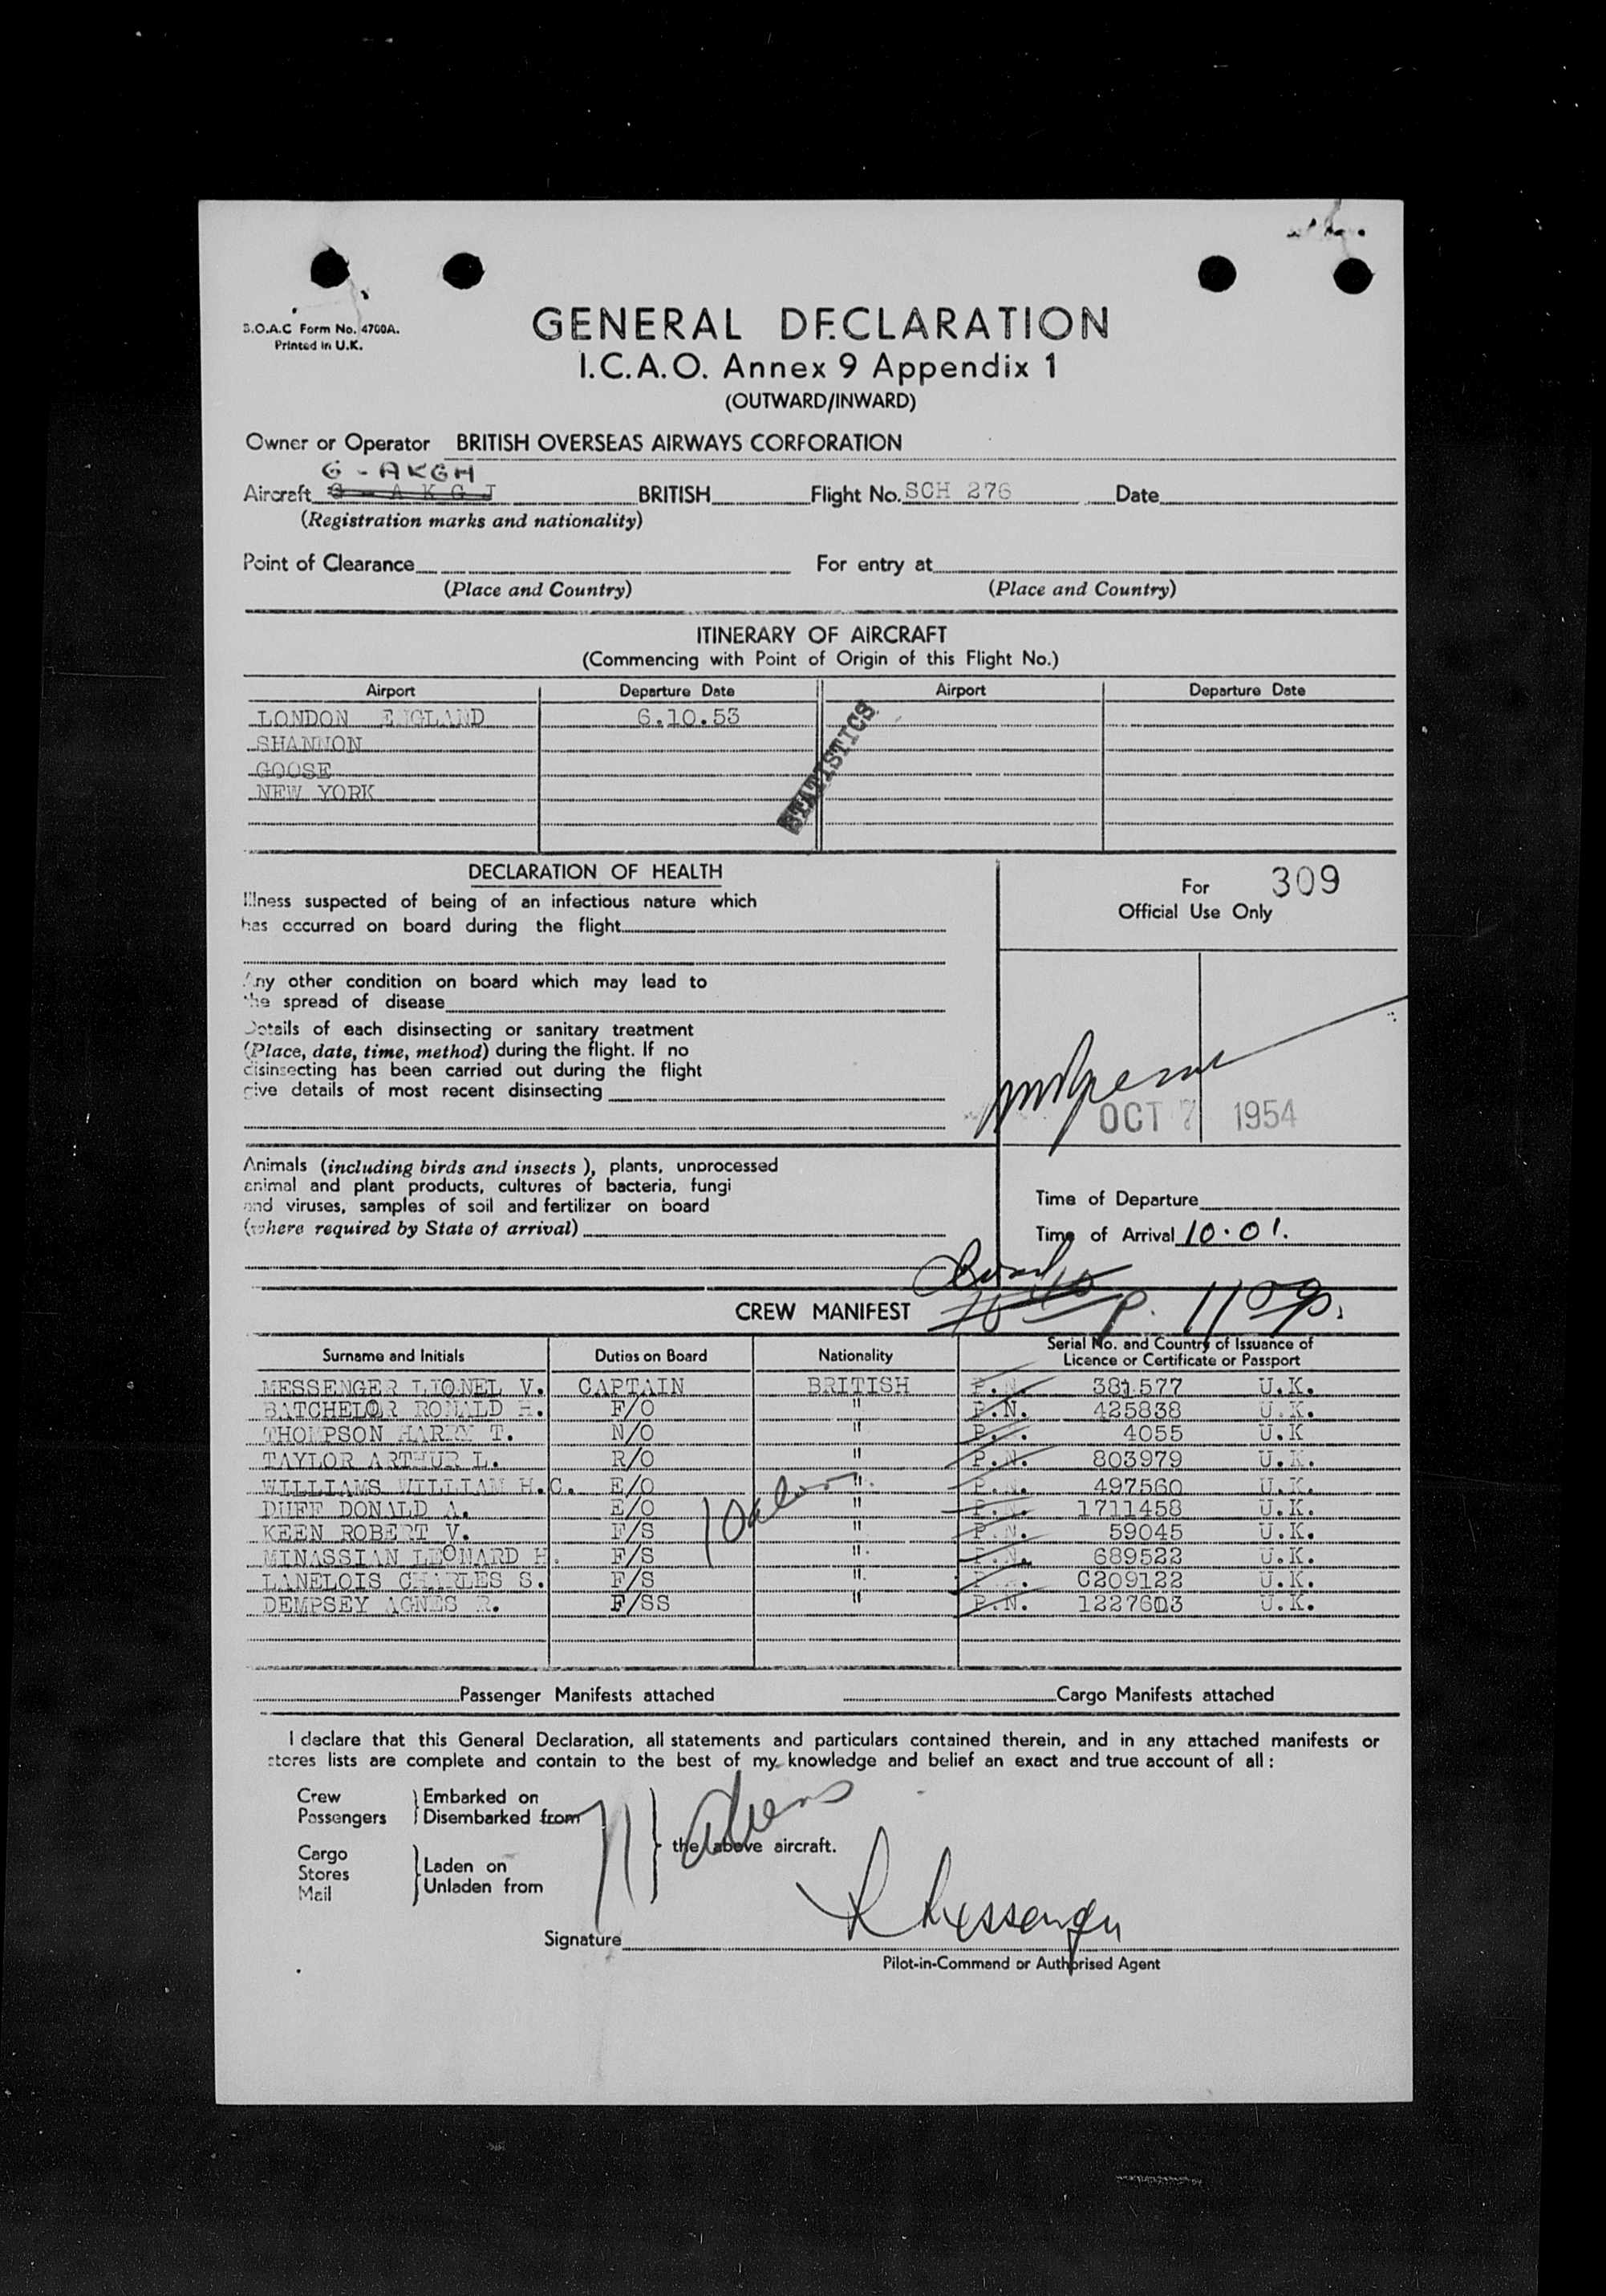 B.O.A.C Form No. 4700A.
Printed in U.K.
GENERAL DECLARATION
I.C.A.O. Annex 9 Appendix 1
(OUTWARD/INWARD)
Owner or Operator BRITISH OVERSEAS AIRWAYS CORPORATION
G - AKGH
Aircraft G - A K G J BRITISH Flight No. SCH 276 Date
(Registration marks and nationality)
Point of Clearance For entry at
(Place and Country) (Place and Country)
ITINERARY OF AIRCRAFT
(Commencing with Point of Origin of this Flight No.)
Airport Departure Date Airport Departure Date
LONDON ENGLAND 6.10.53
SHANNON
GOOSE
NEW YORK
STATISTICS
DECLARATION OF HEALTH
Illness suspected of being of an infectious nature which
has occurred on board during the flight
Any other condition on board which may lead to
the spread of disease
Details of each disinsecting or sanitary treatment
(Place, date, time, method) during the flight. If no
disinsecting has been carried out during the flight
give details of most recent disinsecting
For 309
Official Use Only
OCT 7 1954
Animals (including birds and insects), plants, unprocessed
animal and plant products, cultures of bacteria, fungi
and viruses, samples of soil and fertilizer on board
(where required by State of arrival)
Time of Departure
Time of Arrival 10.01.
CREW MANIFEST
Surname and Initials Duties on Board Nationality Serial No. and Country of Issuance of Licence or Certificate or Passport
MESSENGER LIONEL V. CAPTAIN BRITISH P.N. 381577 U.K.
BATCHELOR RONALD H. F/O " P.N. 425838 U.K.
THOMPSON HARRY T. N/O " P.N. 4055 U.K
TAYLOR ARTHUR L. R/O " P.N. 803979 U.K.
WILLIAMS WILLIAM H.C. E/O " P.N. 497560 U.K.
DUFF DONALD A. E/O " P.N. 1711458 U.K.
KEEN ROBERT V. F/S " P.N. 59045 U.K.
MINASSIAN LEONARD H. F/S " P.N. 689522 U.K.
LANELOIS CHARLES S. F/S " P.N. C209122 U.K.
DEMPSEY AGNES R. F/SS " P.N. 1227603 U.K.
Passenger Manifests attached Cargo Manifests attached
I declare that this General Declaration, all statements and particulars contained therein, and in any attached manifests or
stores lists are complete and contain to the best of my knowledge and belief an exact and true account of all :
Crew Embarked on
Passengers Disembarked from
the above aircraft.
Cargo
Stores Laden on
Mail Unladen from
Signature L Messenger
Pilot-in-Command or Authorised Agent